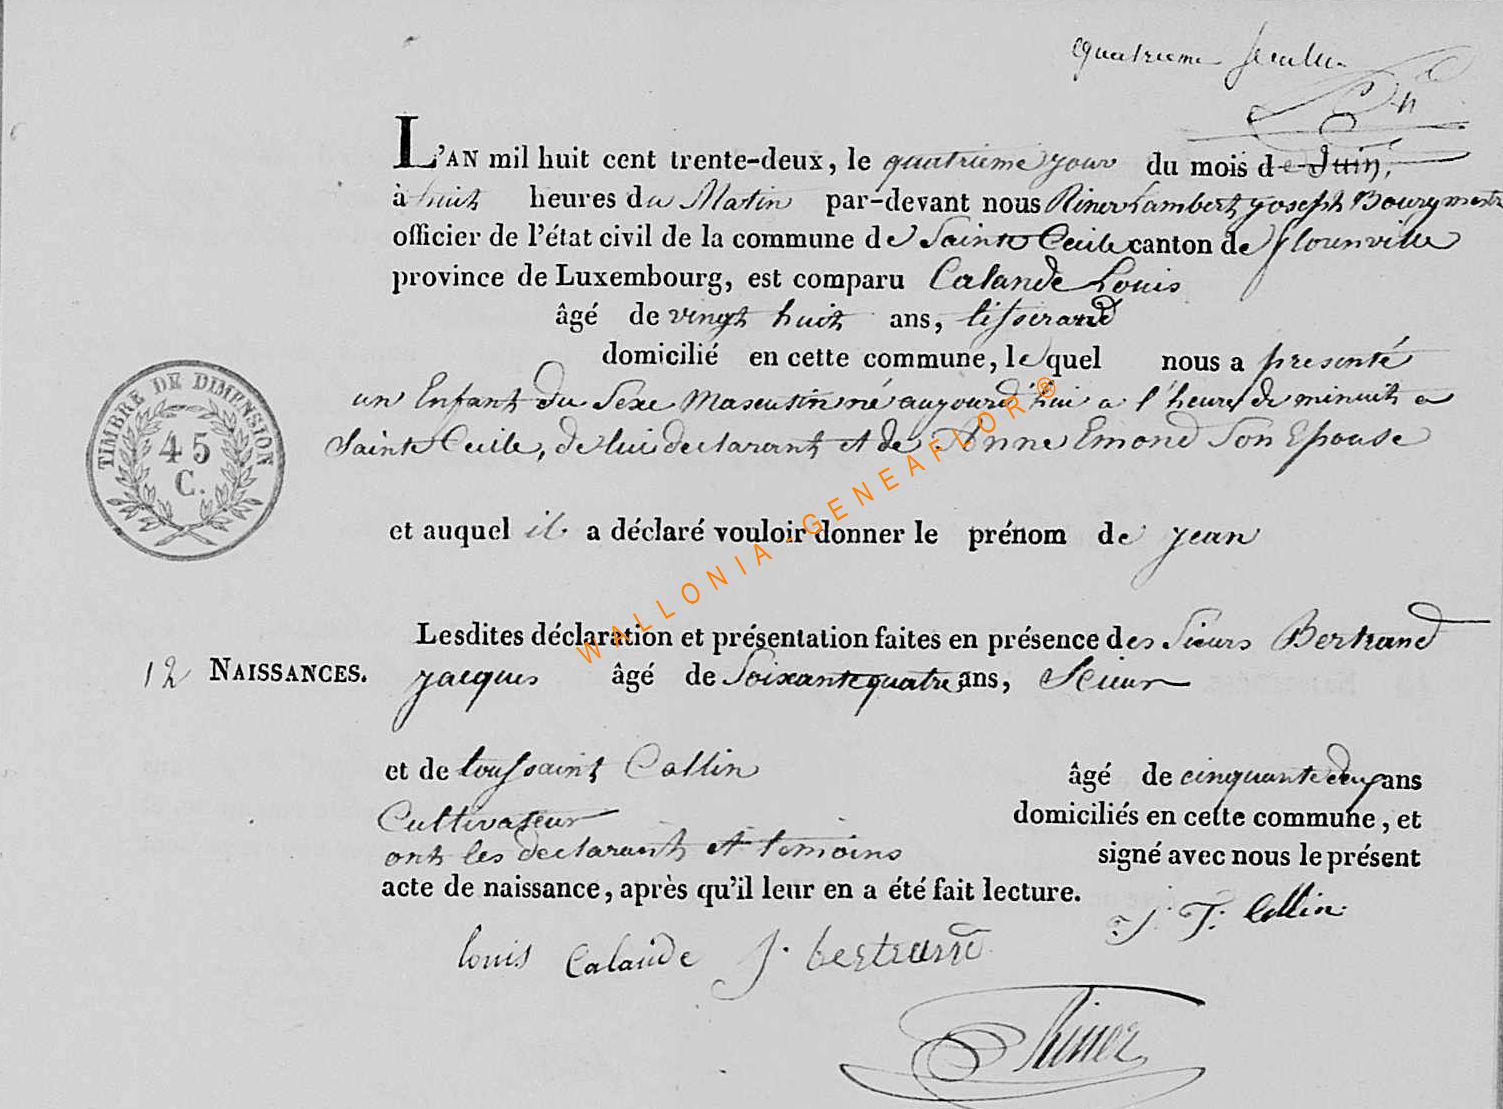 quatrieme feuille
L'AN mil huit cent trente-deux, le quatrieme jour du mois de Juin,
à huit heures du Matin par-devant nous Riner Lambert joseph Bourgmestre
officier de l'état civil de la commune de Sainte Cecile canton de florenville
province de Luxembourg, est comparu Calande Louis
âgé de vingt huit ans, tisserand
domicilié en cette commune, lequel nous a presenté
un Enfant du Sexe Masculin né aujourd'hui a l'heure de minuit a
Sainte Cecile, de lui declarant et de Anne Emond Son Epouse
TIMBRE DE DIMENSION
45
C.
et auquel il a déclaré vouloir donner le prénom de jean
Lesdites déclaration et présentation faites en présence des Sieurs Bertrand
12 NAISSANCES.
jacques âgé de Soixante quatre ans, Scieur
et de toussaint Collin âgé de cinquante deux ans
Cultivateur domiciliés en cette commune, et
ont les declarant et temoins signé avec nous le présent
acte de naissance, après qu'il leur en a été fait lecture.
J. T. Collin
louis Calande J. bertrand
Riner
WALLONIA-GENEAFLOR®